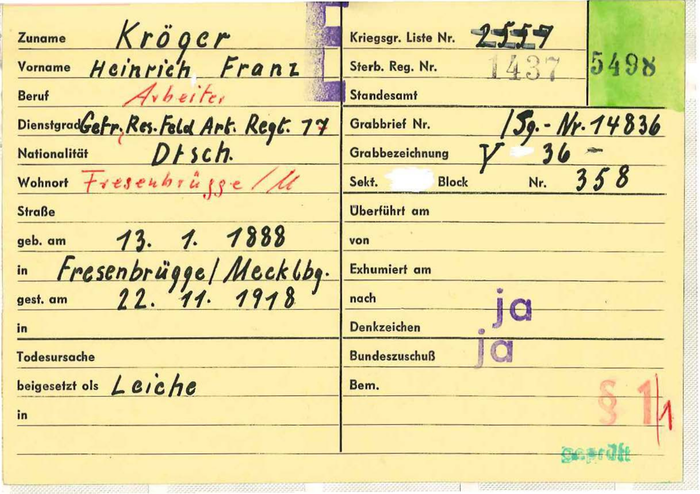 Zuname Kröger
Vorname Heinrich Franz
Beruf Arbeiter
Dienstgrad Gefr. Res. Feld Art. Regt. 17
Nationalität Dtsch.
Wohnort Fresenbrügge/M
Straße
geb. am 13. 1. 1888
in Fresenbrügge/Mecklbg.
gest. am 22. 11. 1918
in
Todesursache
beigesetzt als Leiche
in
Kriegsgr. Liste Nr. 2557
Sterb. Reg. Nr. 1437 5498
Standesamt
Grabbrief Nr. /Sg.-Nr. 14836
Grabbezeichnung Y 36 -
Sekt. Block Nr. 358
Überführt am
von
Exhumiert am
nach
Denkzeichen ja
Bundeszuschuß ja
Bem.
§ 1/1
geprüft